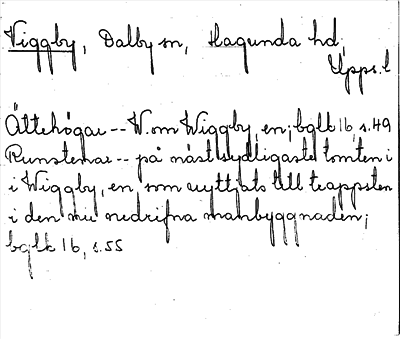 Viggby, Dalby sn, Hagunda hd,
Upps. l
Ättehögar -- W. om Wiggby, en; bglk 16, s. 49
Runstenar -- på näst sydligaste tomten i
i Wiggby, en, som nyttjats till trappsten
i den nu nedrifna manbyggnaden;
bglk 16, s. 55